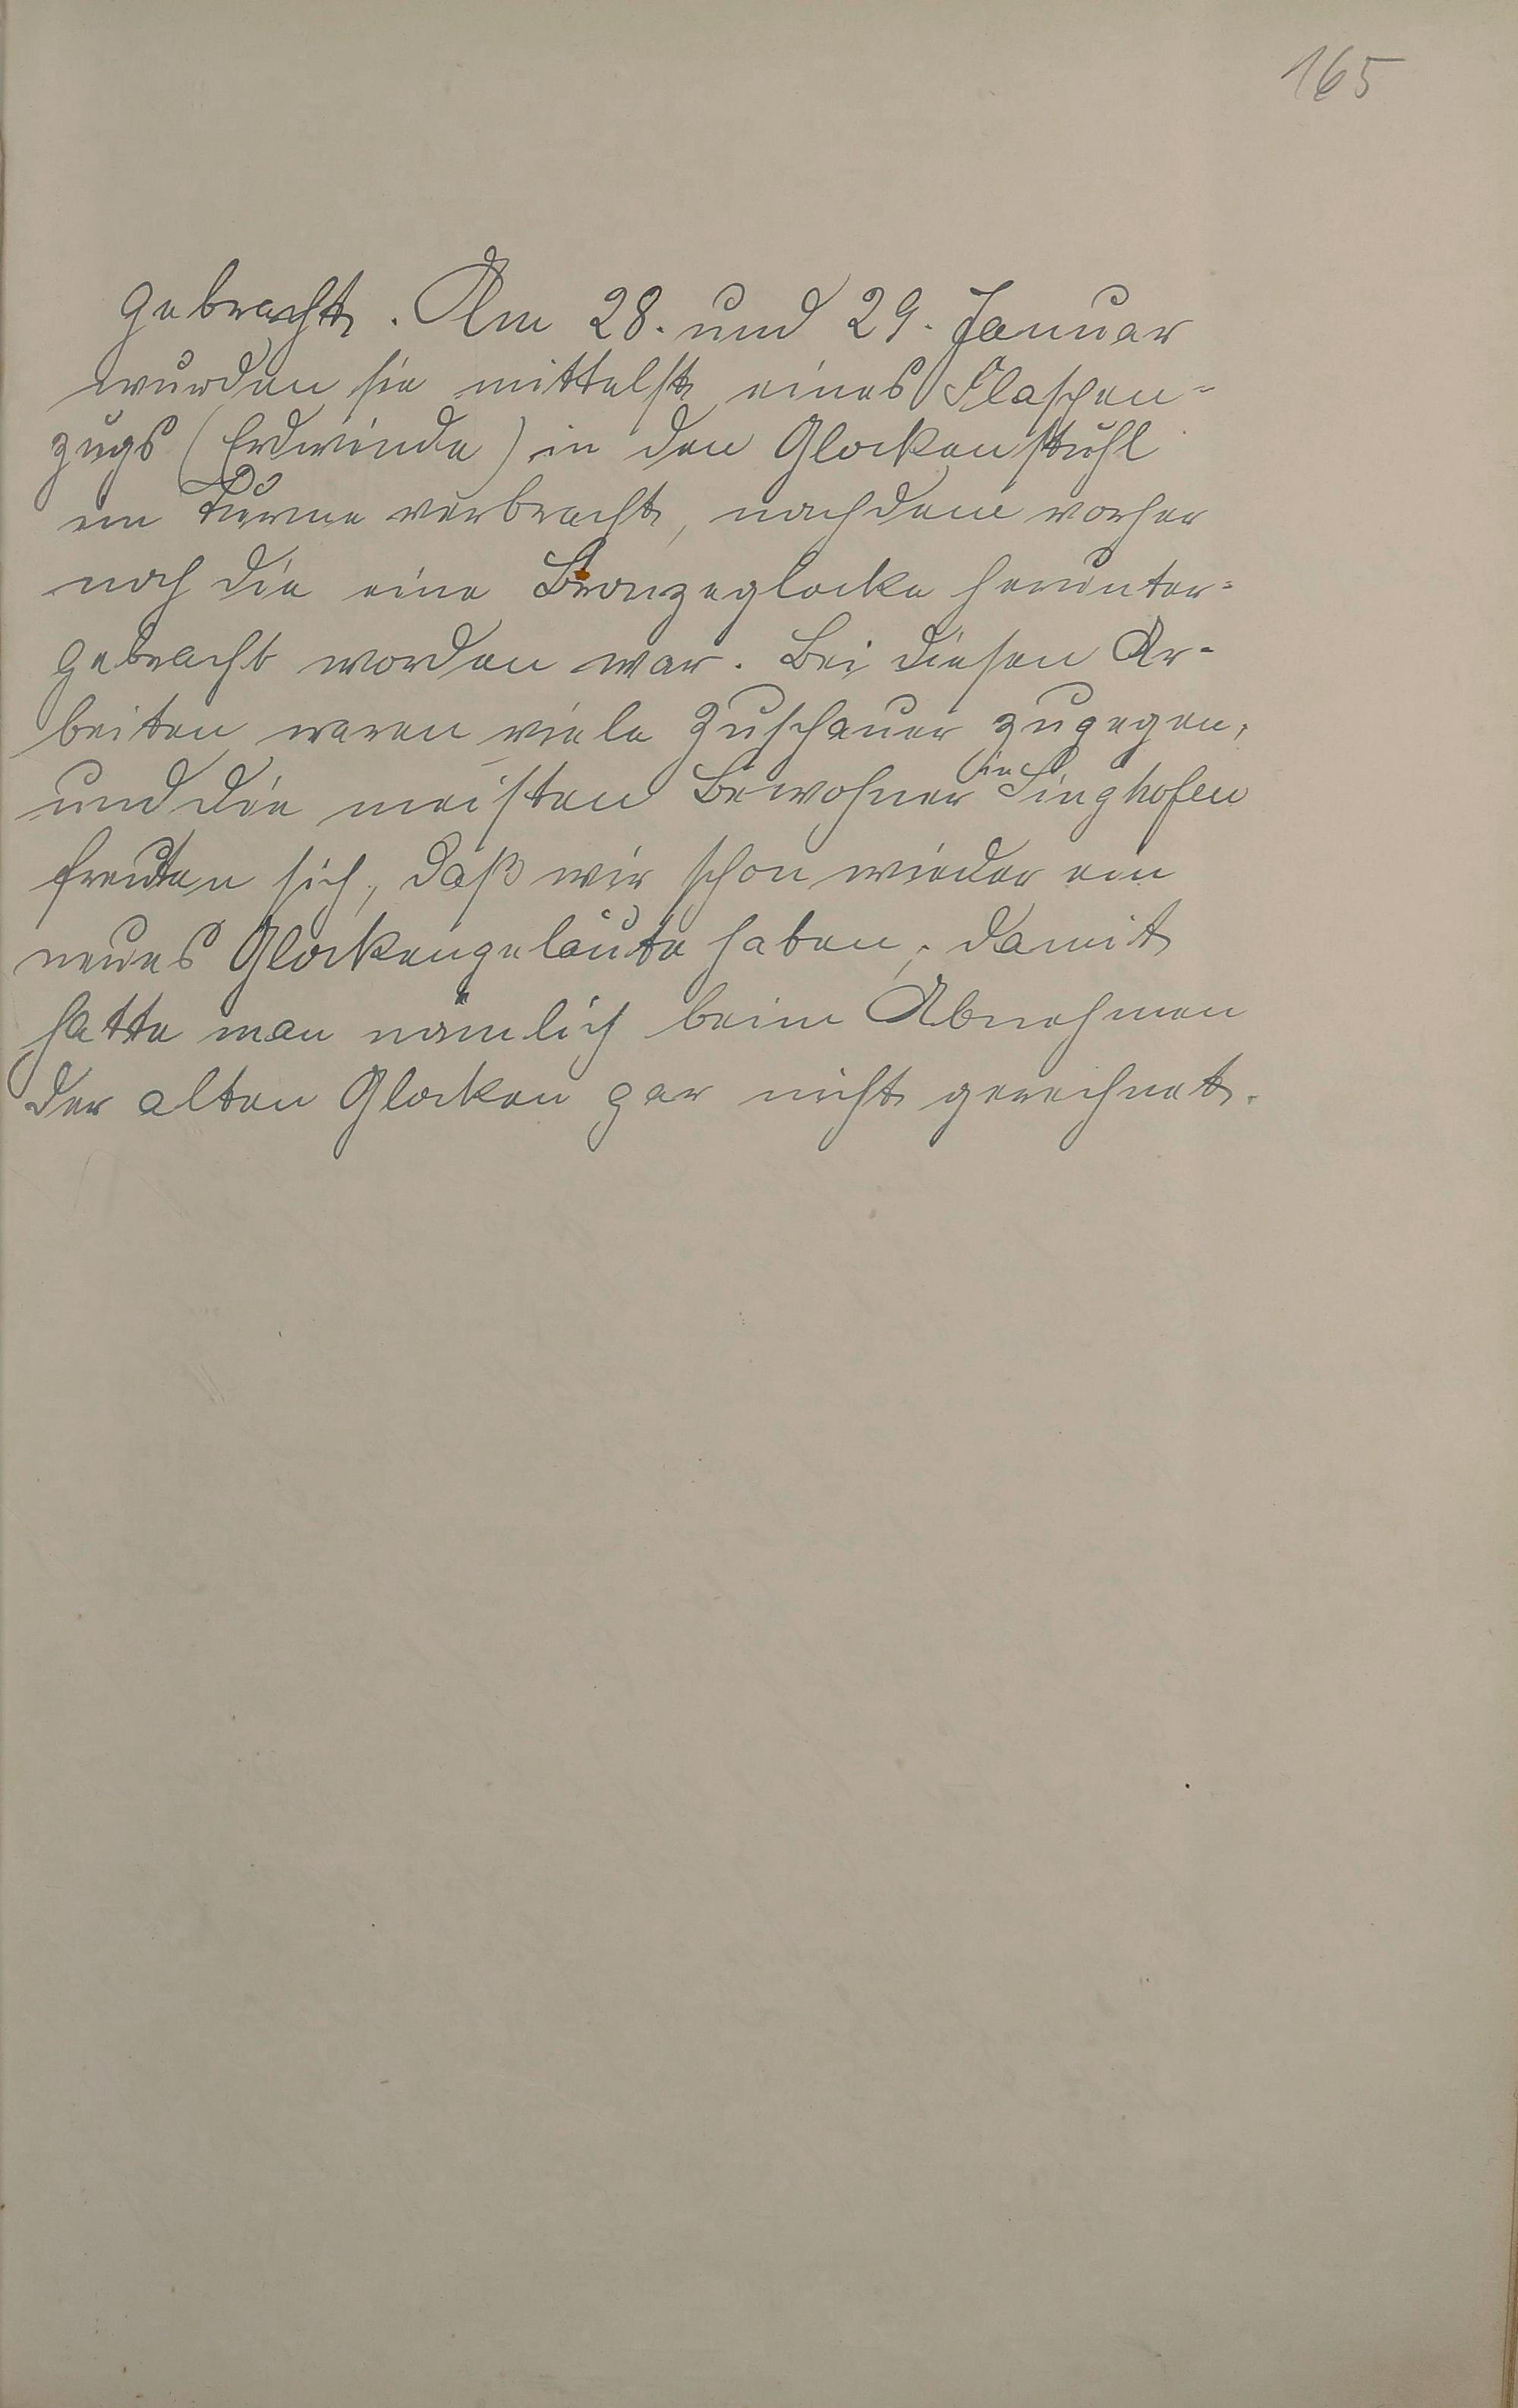 165
gebracht. Am 28. und 29. Januar
wurden sie mittelst eines Flaschen-
zugs (Erdwinde) in den Glockenstuhl
im Turme verbracht, nachdem vorher
noch die eine Bronzeglocke herunter-
gebracht worden war. Bei diesen Ar-
beiten waren viele Zuschauer zugegen,
und die meisten Bewohner in Singhofen
freuten sich, daß wir schon wieder ein
neues Glockengeläute haben; damit
hatte man nämlich beim Abnehmen
der alten Glocken gar nicht gerechnet.